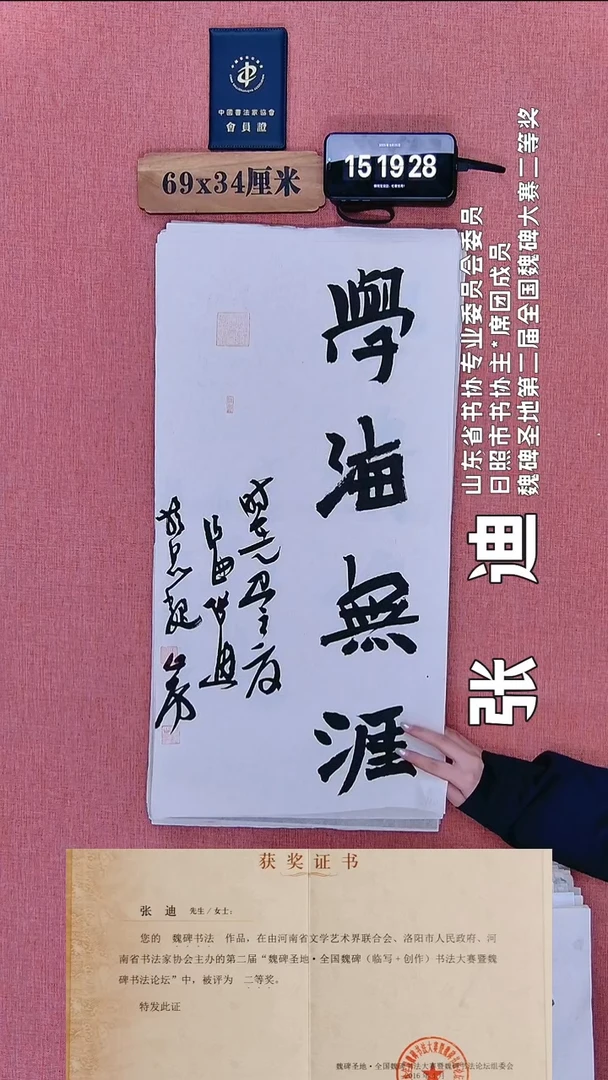 中國書法家協會
會員證
69x34厘米
15 19 28
學海無涯
山东省书协专业委员会委员
日照市书协主*席团成员
魏碑圣地第二届全国魏碑大赛二等奖
张 迪
获奖证书
张 迪 先生/女士:
您的 魏碑书法 作品,在由河南省文学艺术界联合会、洛阳市人民政府、河
南省书法家协会主办的第二届“魏碑圣地·全国魏碑(临写+创作)书法大赛暨魏
碑书法论坛”中,被评为 二等奖。
特发此证
魏碑圣地·全国魏碑书法大赛暨魏碑书法论坛组委会